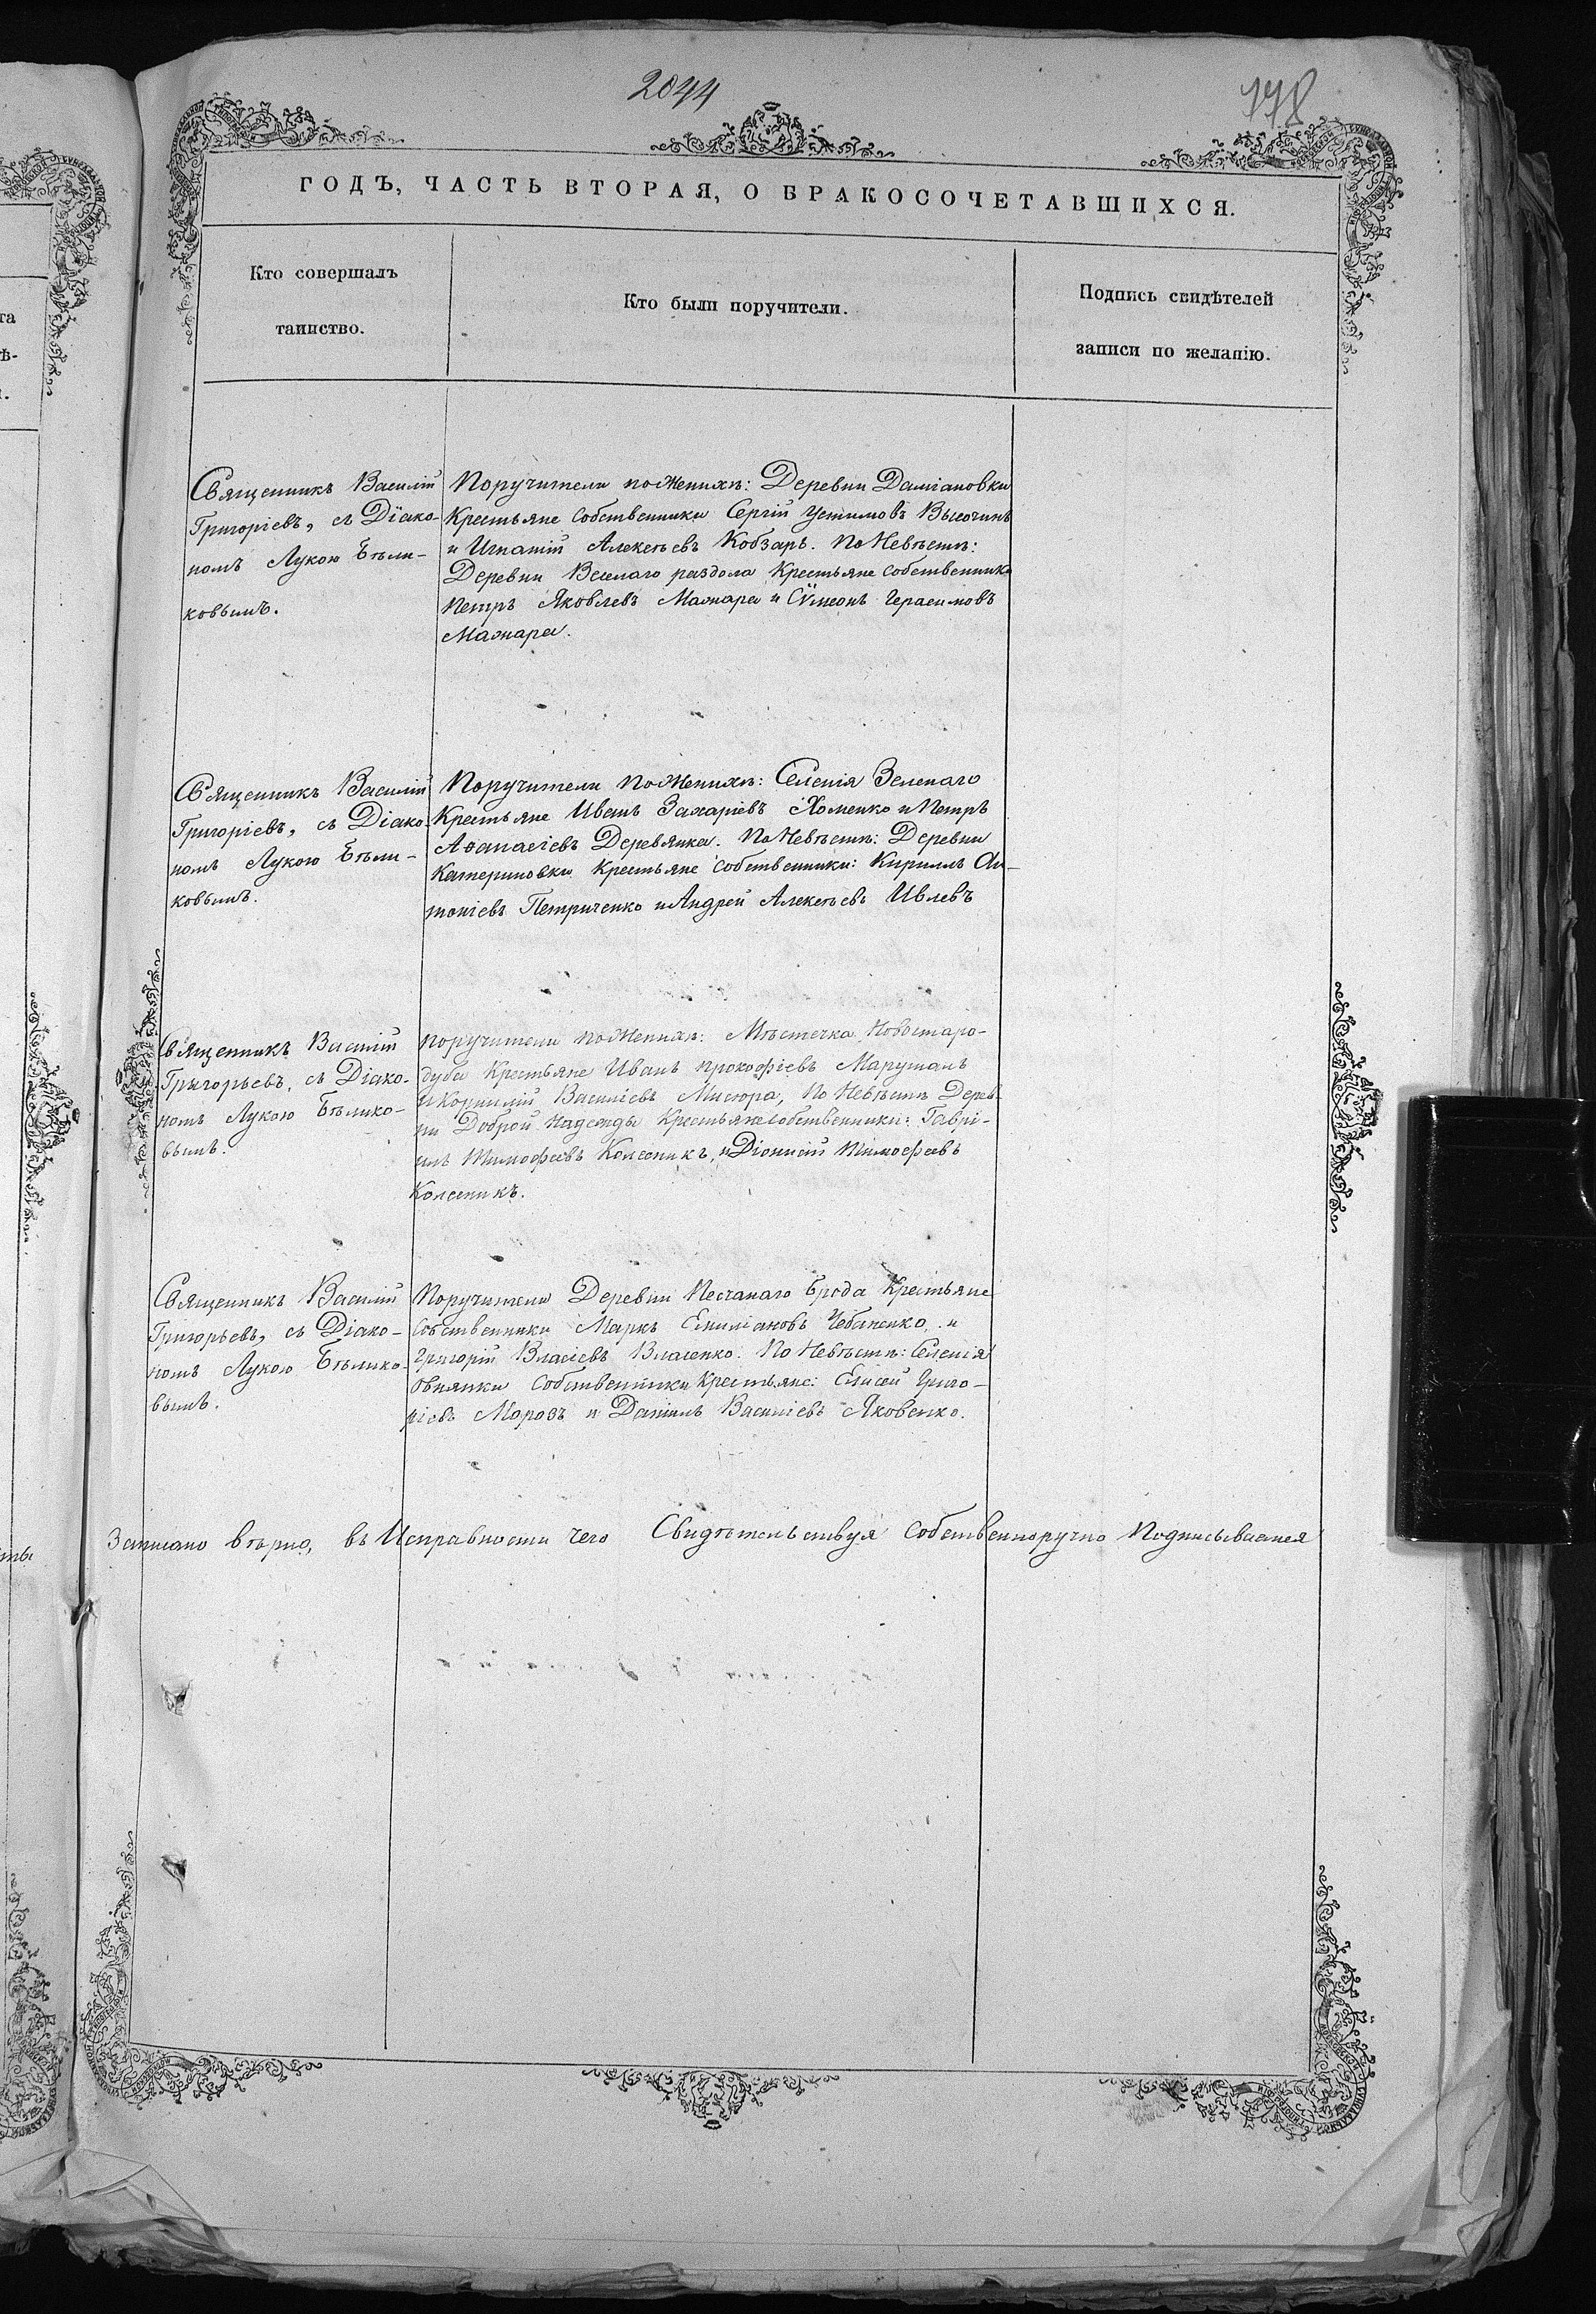 2044
178
ГОДЪ, ЧАСТЬ ВТОРАЯ, О БРАКОСОЧЕТАВШИХСЯ.
Кто совершалъ
таинство.
Кто были поручители.
Подпись свидѣтелей
записи по желанію.
Священникъ Василій
Григоріевъ, съ Діако-
номъ Лукою Бѣли-
ковымъ.
Поручители по Женихѣ: Деревни Даміановки
Крестьяне собственники Сергій Устимовъ Высочинъ
и Игнатій Алексѣевъ Кобзарь. По Невѣстѣ:
Деревни Веселаго раздола Крестьяне собственники
Петръ Яковлевъ Мажара и Сѵмеонъ Герасимовъ
Мажара.
Священникъ Василій
Григоріевъ, съ Діако-
номъ Лукою Бѣли-
ковымъ.
Поручители по Женихѣ: Селенія Зеленаго
Крестьяне Иванъ Захаріевъ Хоменко и Петръ
Аѳанасіевъ Деревянка. По Невѣстѣ: Деревни
Катериновки Крестьяне собственники: Кириллъ Ан-
тоніевъ Петриченко и Андрей Алексѣевъ Ивлевъ
Священникъ Василій
Григорьевъ, съ Діако-
номъ Лукою Бѣлико-
вымъ.
Поручители по Женихѣ: Мѣстечка Новостаро-
дуба Крестьяне Иванъ Прокофіевъ Марушакъ
и Корнилій Василіевъ Мисюра, По Невѣстѣ Дерев-
ни Доброй надежды Крестьяне собственники: Гаврі-
илъ Тимофеевъ Колесникъ, и Діонисій Тимофеевъ
Колесникъ.
Священникъ Василій
Григорьевъ, съ Діако-
номъ Лукою Бѣлико-
вымъ.
Поручители Деревни Песчанаго Брода Крестьяне
Собственники Маркъ Емиліановъ Чебаненко и
Григорій Власіевъ Власенко. По Невѣстѣ: Селенія
Овнянки собственники Крестьяне: Елисей Григо-
ріевъ Морозъ и Даніилъ Василіевъ Яковенко.
Записано вѣрно, въ Исправности чего Свидѣтельствуя Собственноручно Подписываемся